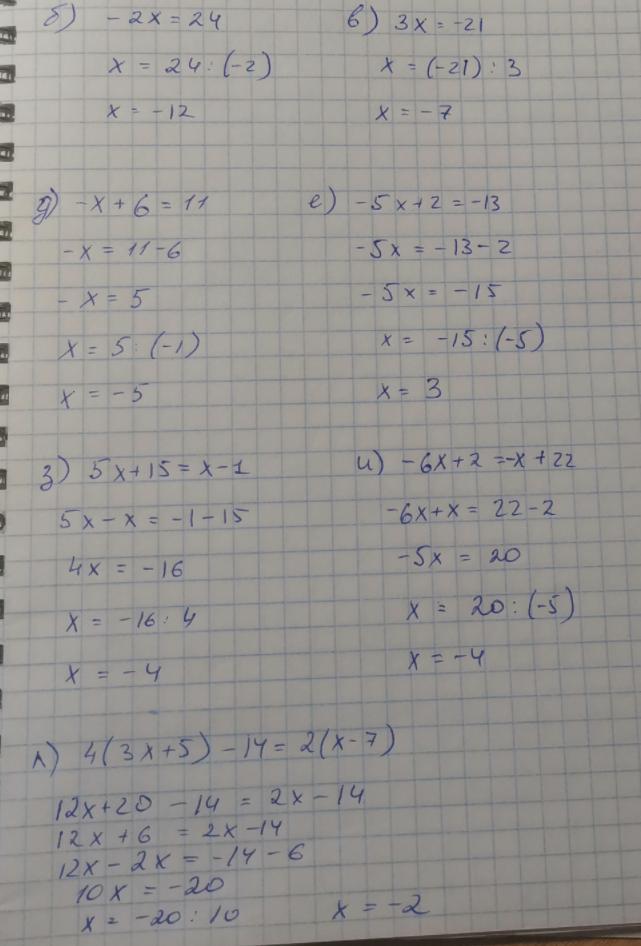 б) -2x = 24
x = 24 : (-2)
x = -12
в) 3x = -21
x = (-21) : 3
x = -7
д) -x + 6 = 11
-x = 11-6
-x = 5
x = 5 : (-1)
x = -5
е) -5x+2 = -13
-5x = -13-2
-5x = -15
x = -15 : (-5)
x = 3
з) 5x+15 = x-1
5x-x = -1-15
4x = -16
x = -16 : 4
x = -4
и) -6x+2 = -x+22
-6x+x = 22-2
-5x = 20
x = 20 : (-5)
x = -4
л) 4(3x+5) - 14 = 2(x-7)
12x+20 - 14 = 2x-14
12x + 6 = 2x-14
12x - 2x = -14 - 6
10x = -20
x = -20 : 10 x = -2